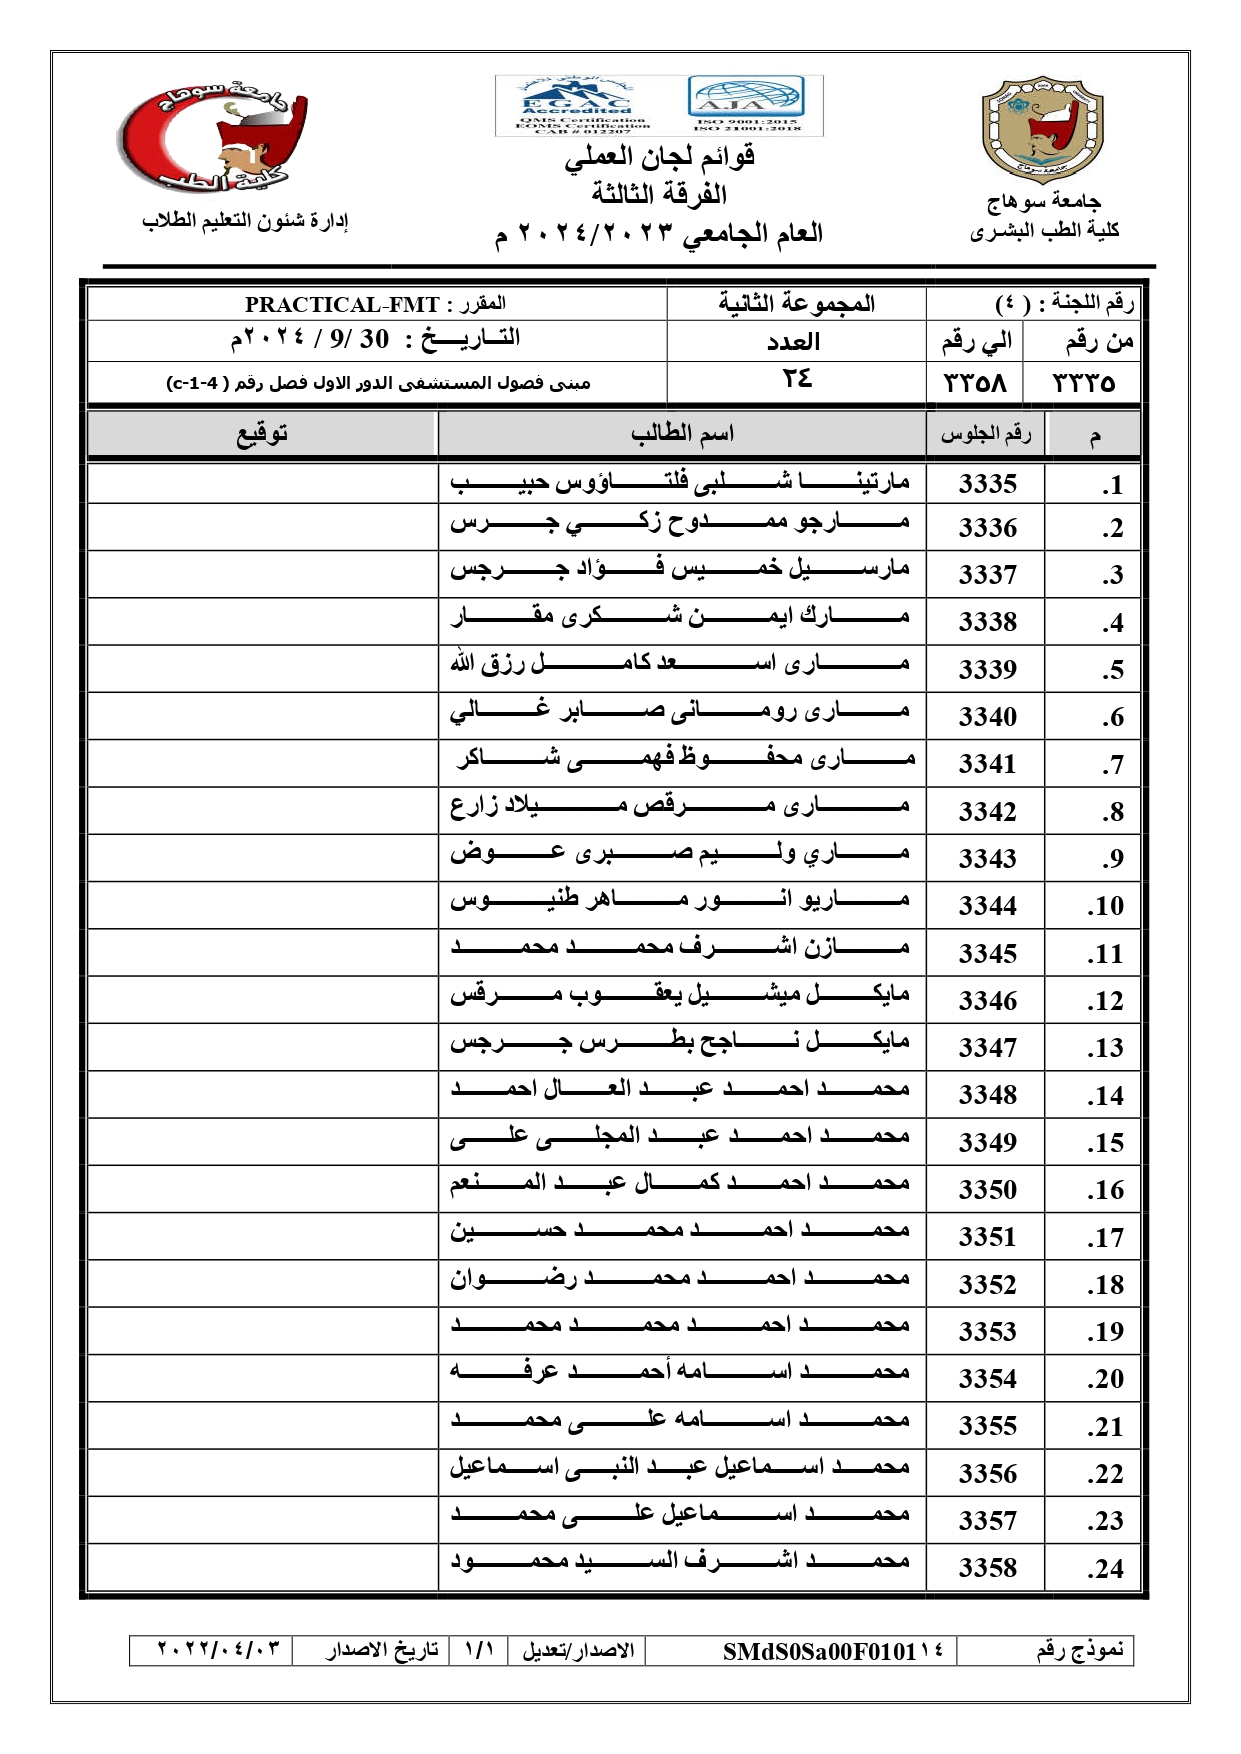 جامعة سوهاج
كلية الطب
EGAC
Accredited
QMS Certification
EOMS Certification
CAB # 012207
AJA
ISO 9001:2015
ISO 21001:2018
جامعة سوهاج
جامعة سوهاج
كلية الطب البشرى
قوائم لجان العملي
الفرقة الثالثة
العام الجامعي ٢٠٢٤/٢٠٢٣ م
إدارة شئون التعليم الطلاب
رقم اللجنة : ( ٤) المجموعة الثانية المقرر : PRACTICAL-FMT
من رقم الي رقم العدد التاريخ : 30 /9 / ٢٠٢٤م
٣٣٣٥ ٣٣٥٨ ٢٤ مبنى فصول المستشفى الدور الاول فصل رقم ( c-1-4)
م رقم الجلوس اسم الطالب توقيع
1. 3335 مارتينا شلبى فلتاؤوس حبيب
2. 3336 مارجو ممدوح زكي جرس
3. 3337 مارسيل خميس فؤاد جرجس
4. 3338 مارك ايمن شكرى مقار
5. 3339 مارى اسعد كامل رزق الله
6. 3340 مارى رومانى صابر غالي
7. 3341 مارى محفوظ فهمى شاكر
8. 3342 مارى مرقص ميلاد زارع
9. 3343 ماري وليم صبرى عوض
10. 3344 ماريو انور ماهر طنيوس
11. 3345 مازن اشرف محمد محمد
12. 3346 مايكل ميشيل يعقوب مرقس
13. 3347 مايكل ناجح بطرس جرجس
14. 3348 محمد احمد عبد العال احمد
15. 3349 محمد احمد عبد المجلى على
16. 3350 محمد احمد كمال عبد المنعم
17. 3351 محمد احمد محمد حسين
18. 3352 محمد احمد محمد رضوان
19. 3353 محمد احمد محمد محمد
20. 3354 محمد اسامه أحمد عرفه
21. 3355 محمد اسامه على محمد
22. 3356 محمد اسماعيل عبد النبى اسماعيل
23. 3357 محمد اسماعيل على محمد
24. 3358 محمد اشرف السيد محمود
نموذج رقم SMdS0Sa00F0101١٤ الاصدار/تعديل ١/١ تاريخ الاصدار ٢٠٢٢/٠٤/٠٣